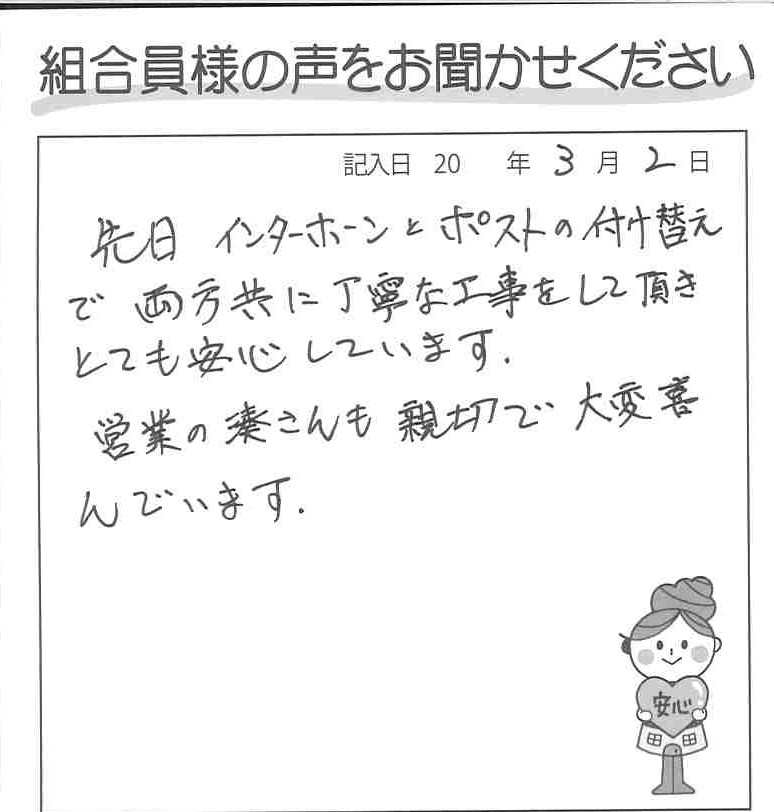 組合員様の声をお聞かせください
記入日 20 年 3 月 2 日
先日 インターホーンとポストの付け替え
で 両方共に丁寧な工事をして頂き
とても安心しています.
営業の湊さんも 親切で 大変喜
んでいます.
安心